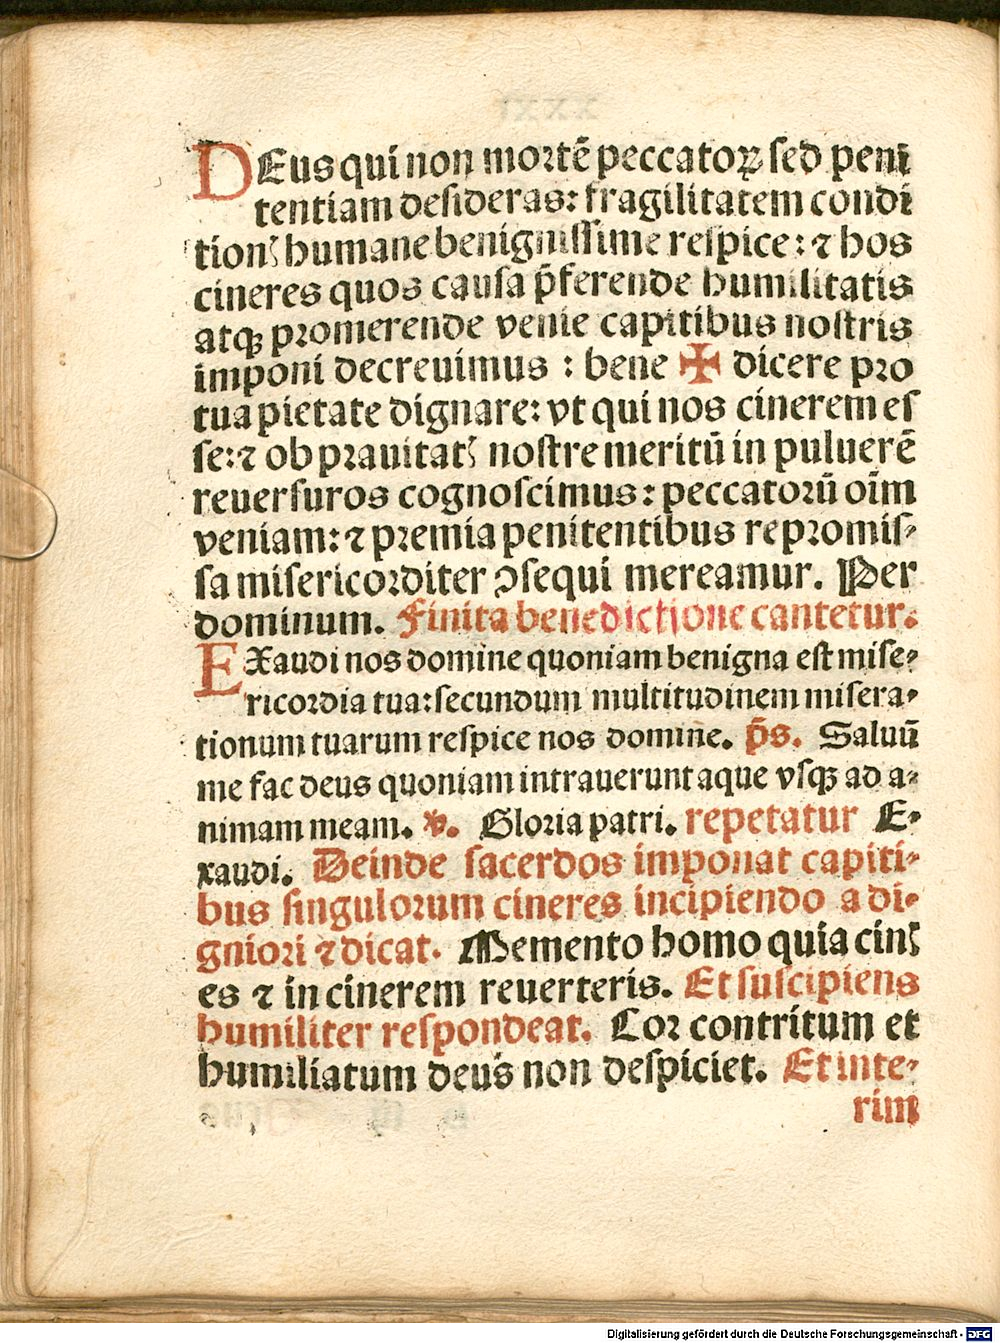 DEus qui non mortē peccatoꝝ sed peni
tentiam desideras: fragilitatem condi
tionꝭ humane benignissime respice: ⁊ hos
cineres quos causa p̄ferende humilitatis
atqꝫ promerende venie capitibus nostris
imponi decreuimus : bene ✠ dicere pro
tua pietate dignare: vt qui nos cinerem es
se: ⁊ ob prauitatꝭ nostre meritū in puluerē
reuersuros cognoscimus: peccatorū oīm
veniam: ⁊ premia penitentibus repromis-
sa misericorditer ꝯsequi mereamur. Per
dominum. Finita benedictione cantetur.
EXaudi nos domine quoniam benigna est mise-
ricordia tua: secundum multitudinem misera-
tionum tuarum respice nos domine. p̄s. Saluū
me fac deus quoniam intrauerunt aque vsqꝫ ad a-
nimam meam. ℣. Gloria patri. repetatur E-
xaudi. Deinde sacerdos imponat capiti-
bus singulorum cineres incipiendo a di-
gniori ⁊ dicat. Memento homo quia cinꝭ
es ⁊ in cinerem reuerteris. Et suscipiens
humiliter respondeat. Cor contritum et
humiliatum deus non despiciet. Et inte-
rim
Digitalisierung gefördert durch die Deutsche Forschungsgemeinschaft - DFG